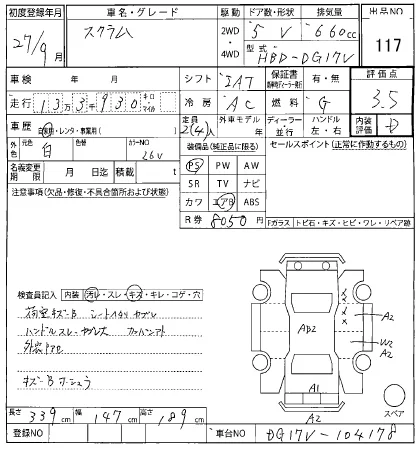 初度登録年月 車名・グレード 駆動 ドア数・形状 排気量 出品NO
27/9月 スクラム 2WD ・ 4WD 5 V 660cc 117
型式 HBD-DG17V
車検 年 月 シフト IAT 保証書 有・無 評価点
走行 13万3千930 キロ・マイル 冷房 AC 燃料 G 3.5
車歴 自家用・レンタ・事業用( ) 定員 2(4)人 外車モデル 年 ディーラー・並行 ハンドル 左・右 内装評価 D
外色 元色 白 色替 カラーNO 26U 装備品(純正品に限る) セールスポイント(正常に作動するもの)
名義変更期限 月 日迄 積載 t PS PW AW
注意事項(欠品・修復・不具合箇所および状態) SR TV ナビ
カワ エアB ABS
R券 8050円
Fガラス トビ石・キズ・ヒビ・ワレ・リペア跡
検査員記入 内装 汚レ・スレ・キズ・キレ・コゲ・穴
荷室キズB シート
ハンドルスレ
キズ
AB2
A2
W2
A2
A1
A2
スペア
長さ 339cm 幅 147cm 高さ 189cm
登録NO 車台NO DG17V-104178